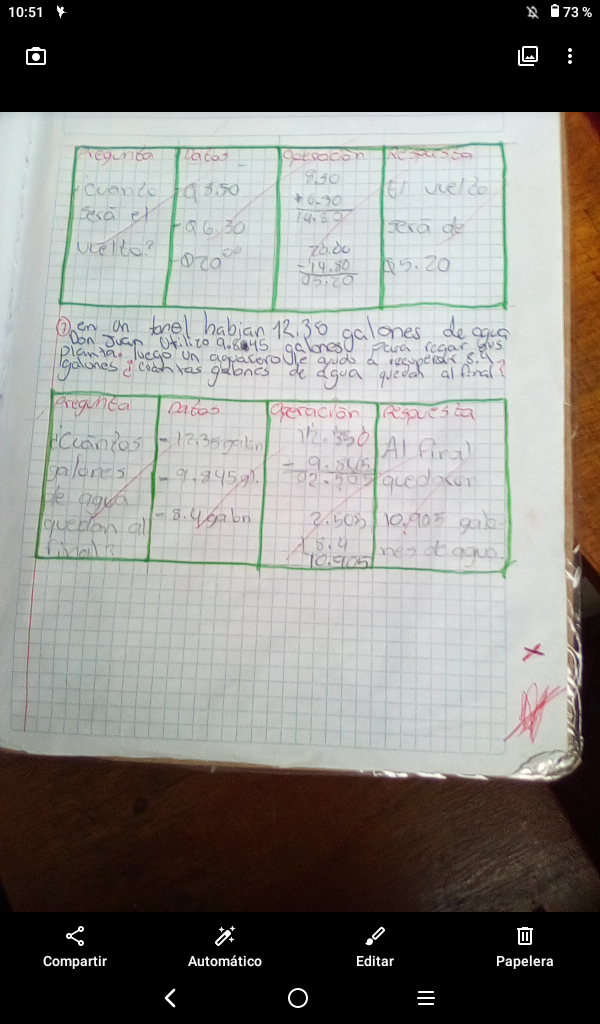 10:51
73 %
Pregunta Datos Operación Respuesta
¿Cuánto
será el
vuelto?
-Q 8.50
-Q6.30
-Q20⁰⁰
8.50
+ 6.30
14.80
20.00
- 14.80
05.20
El vuelto
será de
Q5.20
② en un tonel habian 12.35 galones de agua
Don Juan utilizo 9.845 galones para regar sus
planta. luego un aguasero le ayudo a recuperar 8.4
galones ¿cuantas galones de agua quedan al final?
Pregunta Datos Operación Respuesta
¿Cuántos
galones
de agua
quedan al
final?
- 12.35 galon
- 9.845 gl.
- 8.4 galon
12.350
- 9.845
02.505
2.505
8.4
10.905
Al final
quedaron
10.905 galo-
nes de agua.
Compartir
Automático
Editar
Papelera